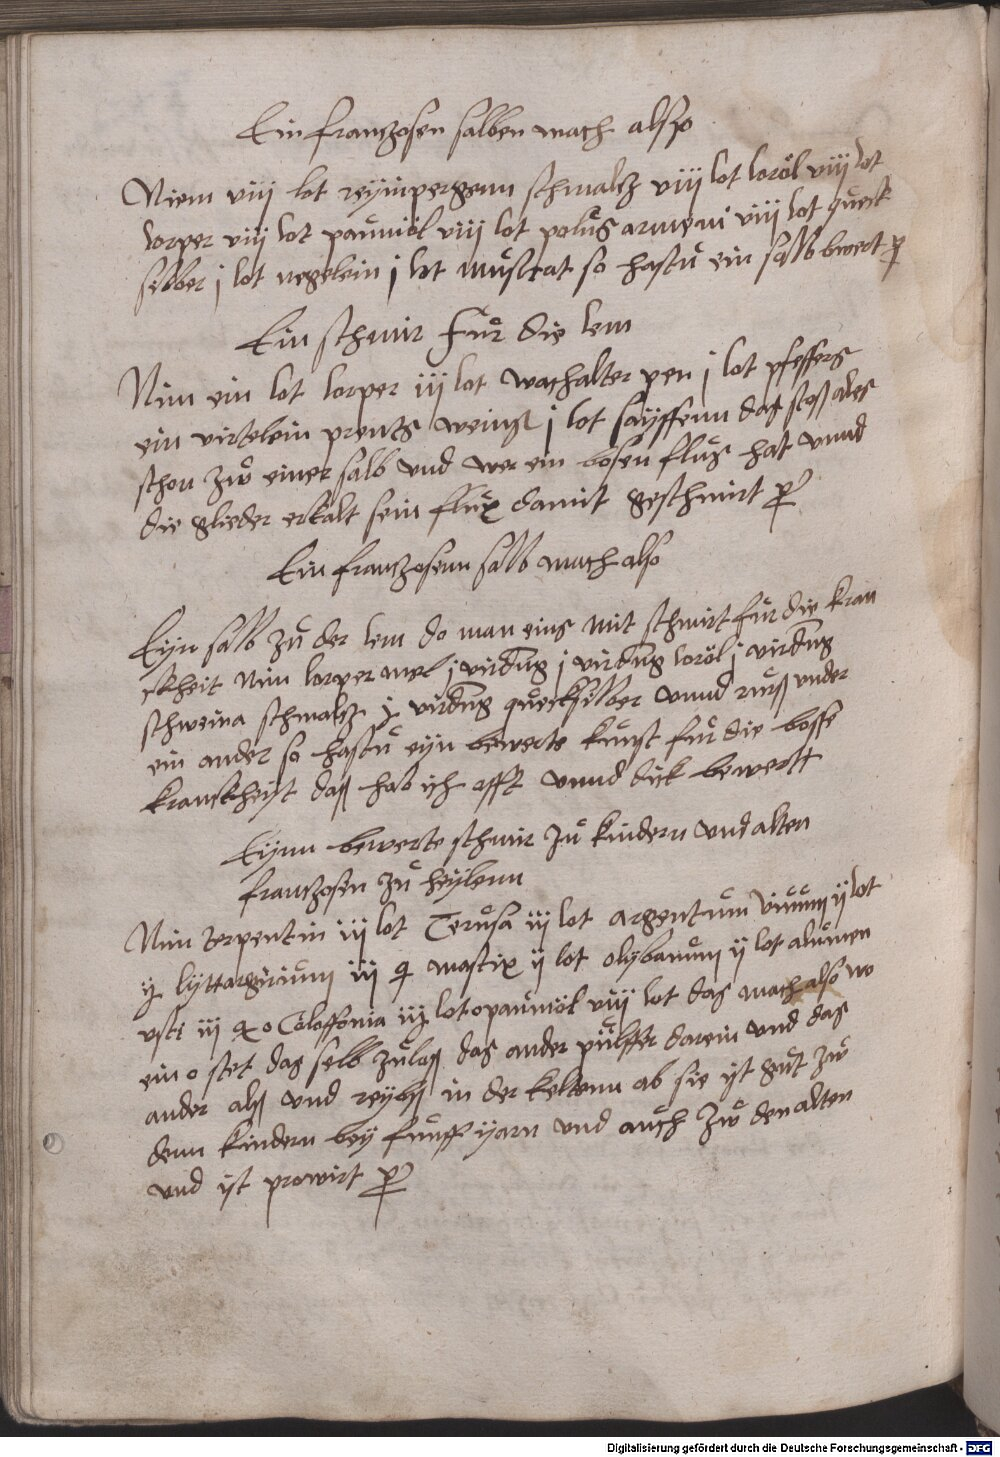 Ein franczosen salben mach alßo
Niem viij lot reÿinpergenn schmaltz viij lot loröl viij lot
lorper viij lot paůmöl viij lot polůs armeni viij lot queck
silber j lot negelein j lot můscat so hastů ein salb bwert
Ein schmir Fůr die lem
Nim ein lot lorper iij lot wachalter pen j lot pfeffers
ein virtelein prents weins j lot saÿffenn das stoß ales
schon zů einer salb vnd wer ein bosen flůs hat vnnd
die glieder erkalt sein flůx damit geschmirt
Ein franczosenn salb mach also
Eÿn salb zů der lem do man eins mit schmirt fůr die kran
ckheit Nim lorper mel j virdung j virdung loröl j virdung
schweina schmaltz j virdung quecksilber vnnd rurß vnder
ein ander so hastů eÿn bewerte kunst fůr die bosse
kranckheÿt daß hab ich offt vnnd dick bewertt
Eÿnn bewerte schmir zů kindern vnd alten
franczosen zů heÿlenn
Nim terpentin iij lot Cerůsa iij lot argentům viuum ij lot
lyttargirium iij q mastix ij lot olybanům ij lot alůmen
vsti iij q Coloffonia iij lot paůmöl viij lot das mach also wo
ein stet das selb zůlaß das ander půlffer darein vnd das
ander alß vnd reÿbß in der keltenn ab sie ist gůt zů
denn kindern beÿ fůnff ÿarn vnd aůch zů den alten
vnd ist prowirt
Digitalisierung gefördert durch die Deutsche Forschungsgemeinschaft - DFG